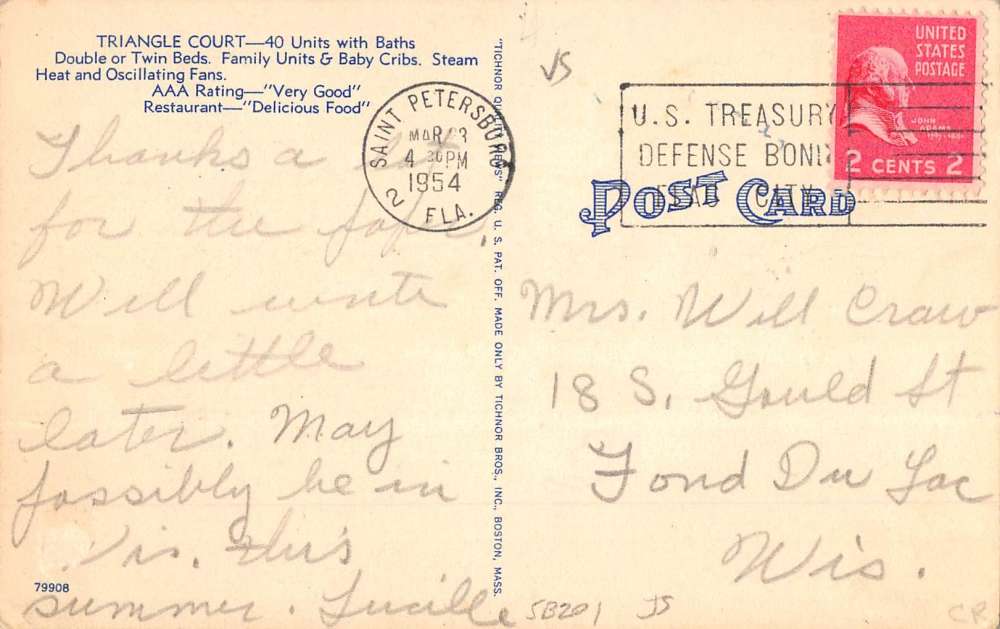 TRIANGLE COURT—40 Units with Baths
Double or Twin Beds. Family Units & Baby Cribs. Steam
Heat and Oscillating Fans.
AAA Rating—"Very Good"
Restaurant—"Delicious Food"
Thanks a
for the
Will write
a little
later. May
possibly be in
Wis. this
summer. Lucille
79908
SAINT PETERSBURG
MAR 3
4 30 PM
1954
2 FLA.
"TICHNOR QUALITY VIEWS" REG. U. S. PAT. OFF. MADE ONLY BY TICHNOR BROS., INC., BOSTON, MASS.
JS
U.S. TREASURY
DEFENSE BOND
UNITED
STATES
POSTAGE
JOHN
ADAMS
2 CENTS 2
POST CARD
Mrs. Will Craw
18 S. Gould St
Fond Du Lac
Wis.
5B201 JS
CR